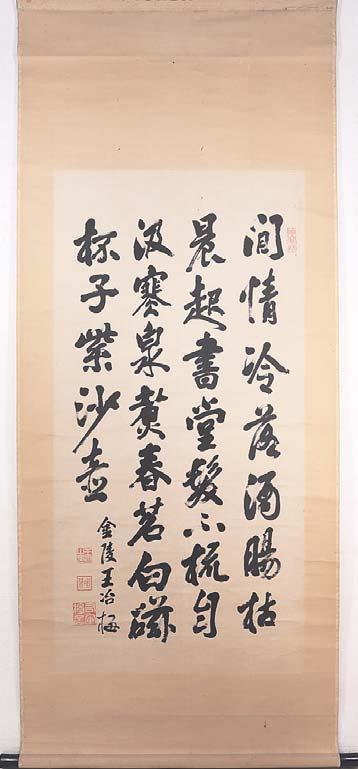 閒情冷落酒腸枯
晨起書堂髮不梳自
汲寒泉煑春茗白磁
杯子紫沙壺
金陵王冶梅